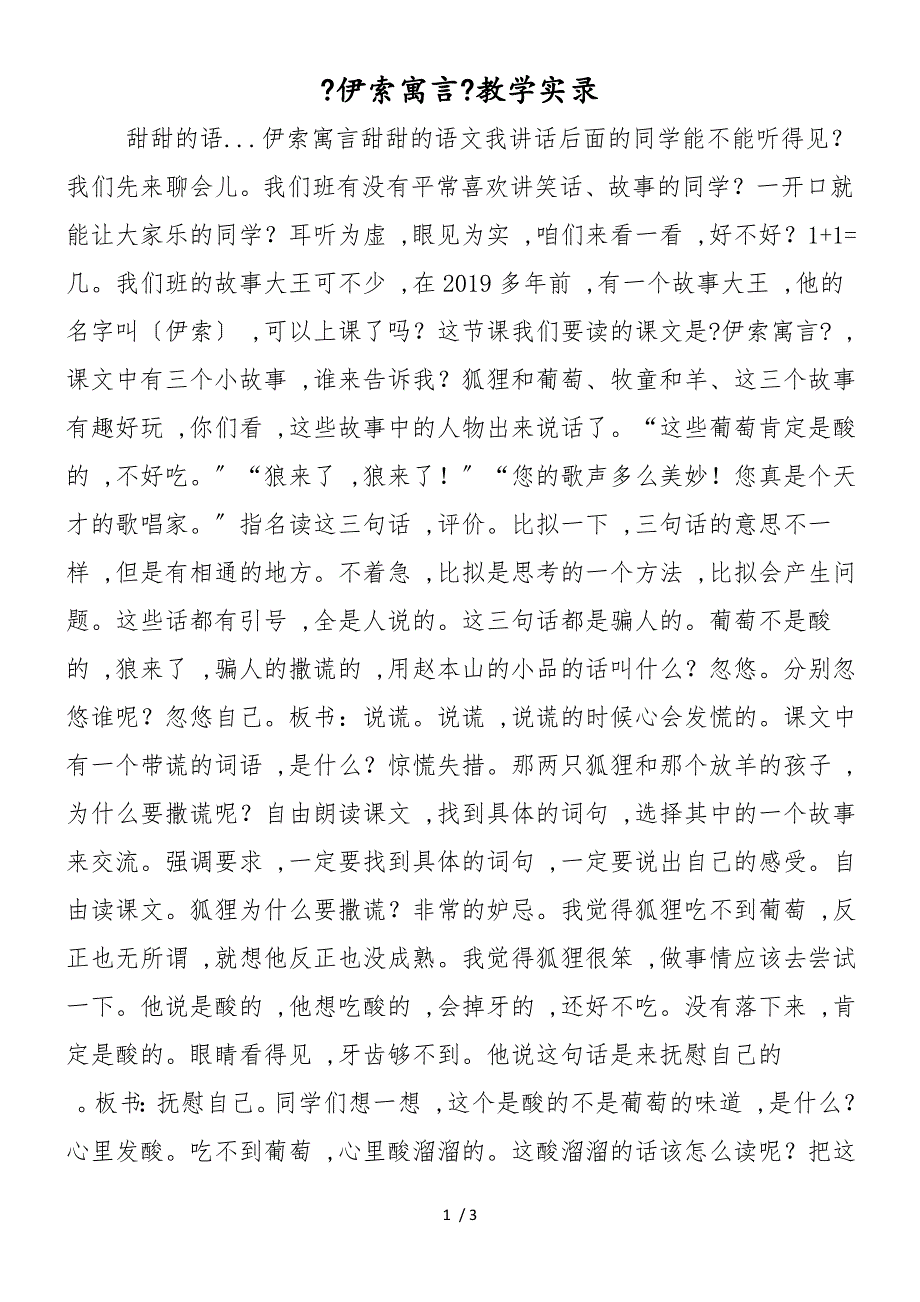 ?伊索寓言?教学实录
甜甜的语...伊索寓言甜甜的语文我讲话后面的同学能不能听得见？
我们先来聊会儿。我们班有没有平常喜欢讲笑话、故事的同学？一开口就
能让大家乐的同学？耳听为虚 ,眼见为实 ,咱们来看一看 ,好不好？1+1=
几。我们班的故事大王可不少 ,在 2019 多年前 ,有一个故事大王 ,他的
名字叫〔伊索〕 ,可以上课了吗？这节课我们要读的课文是?伊索寓言? ,
课文中有三个小故事 ,谁来告诉我？狐狸和葡萄、牧童和羊、这三个故事
有趣好玩 ,你们看 ,这些故事中的人物出来说话了。“这些葡萄肯定是酸
的 ,不好吃。〞“狼来了 ,狼来了！〞“您的歌声多么美妙！您真是个天
才的歌唱家。〞指名读这三句话 ,评价。比拟一下 ,三句话的意思不一
样 ,但是有相通的地方。不着急 ,比拟是思考的一个方法 ,比拟会产生问
题。这些话都有引号 ,全是人说的。这三句话都是骗人的。葡萄不是酸
的 ,狼来了 ,骗人的撒谎的 ,用赵本山的小品的话叫什么？忽悠。分别忽
悠谁呢？忽悠自己。板书：说谎。说谎 ,说谎的时候心会发慌的。课文中
有一个带谎的词语 ,是什么？惊慌失措。那两只狐狸和那个放羊的孩子 ,
为什么要撒谎呢？自由朗读课文 ,找到具体的词句 ,选择其中的一个故事
来交流。强调要求 ,一定要找到具体的词句 ,一定要说出自己的感受。自
由读课文。狐狸为什么要撒谎？非常的妒忌。我觉得狐狸吃不到葡萄 ,反
正也无所谓 ,就想他反正也没成熟。我觉得狐狸很笨 ,做事情应该去尝试
一下。他说是酸的 ,他想吃酸的 ,会掉牙的 ,还好不吃。没有落下来 ,肯
定是酸的。眼睛看得见 ,牙齿够不到。他说这句话是来抚慰自己的
。板书：抚慰自己。同学们想一想 ,这个是酸的不是葡萄的味道 ,是什么？
心里发酸。吃不到葡萄 ,心里酸溜溜的。这酸溜溜的话该怎么读呢？把这
1 / 3